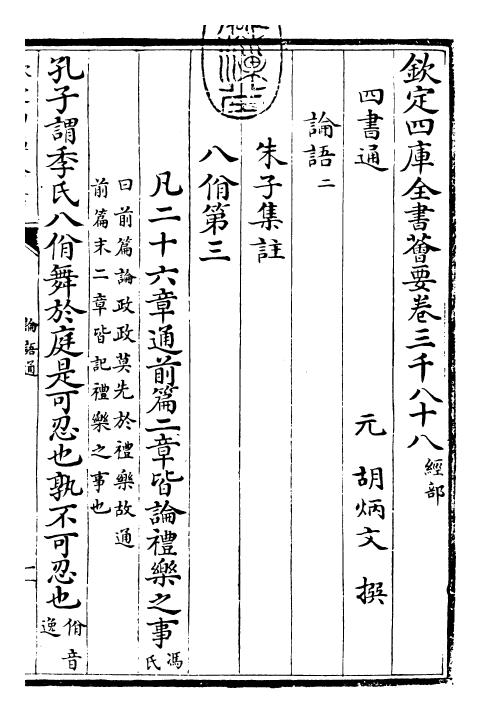 欽定四庫全書薈要卷三千八十八 經部
四書通 元 胡炳文 撰
論語二
朱子集註
八佾第三
凡二十六章通前篇二章皆論禮樂之事 馮氏
曰前篇論政政莫先於禮樂故通
前篇末二章皆記禮樂之事也
孔子謂季氏八佾舞於庭是可忍也孰不可忍也 佾音逸
論語通